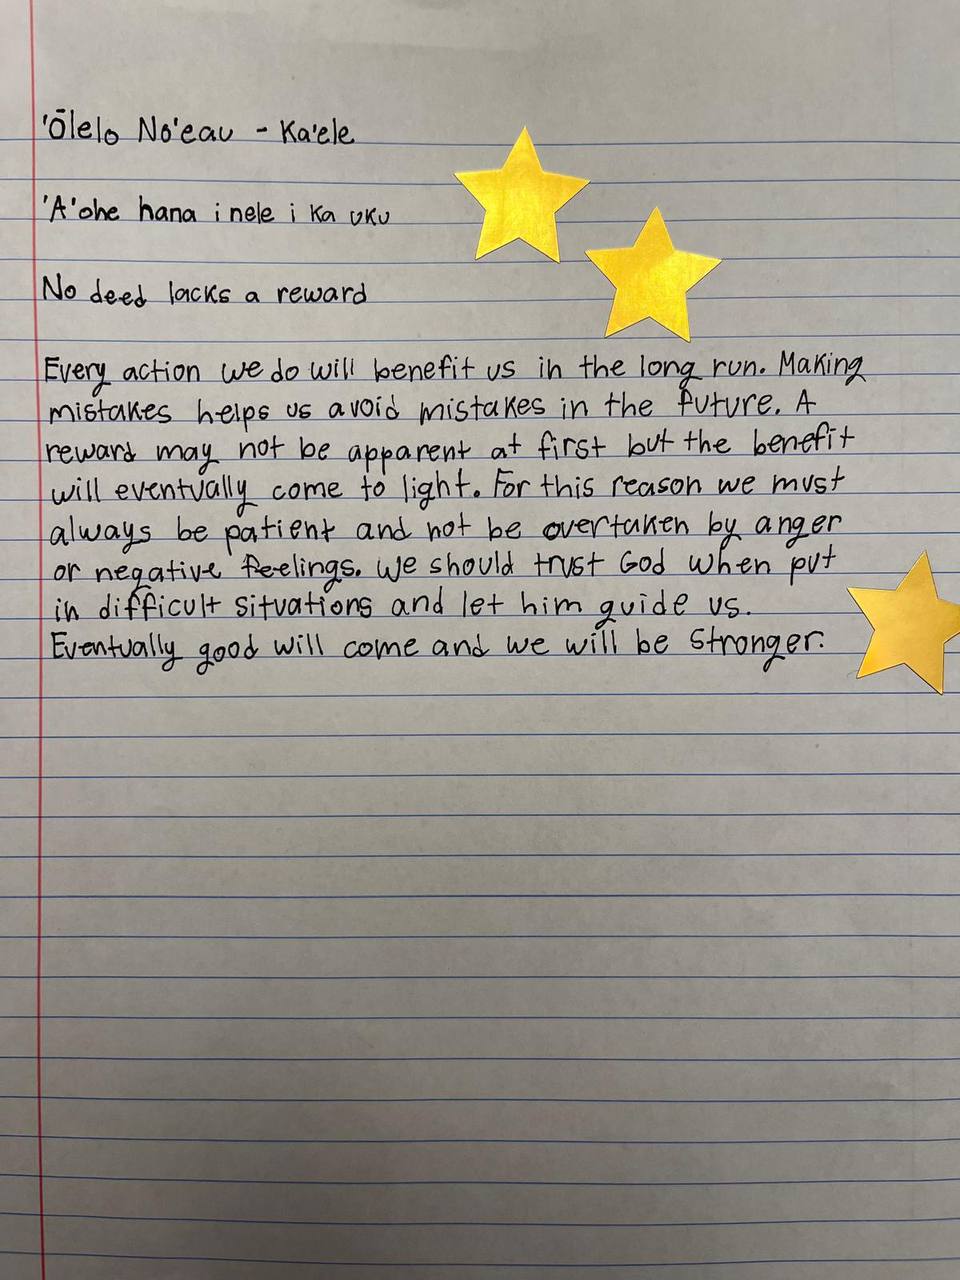 'Ōlelo No'eau - Ka'ele
'A'ohe hana i nele i ka uku
No deed lacks a reward
Every action we do will benefit us in the long run. Making
mistakes helps us avoid mistakes in the future. A
reward may not be apparent at first but the benefit
will eventually come to light. For this reason we must
always be patient and not be overtaken by anger
or negative feelings. We should trust God when put
in difficult situations and let him guide us.
Eventually good will come and we will be stronger.